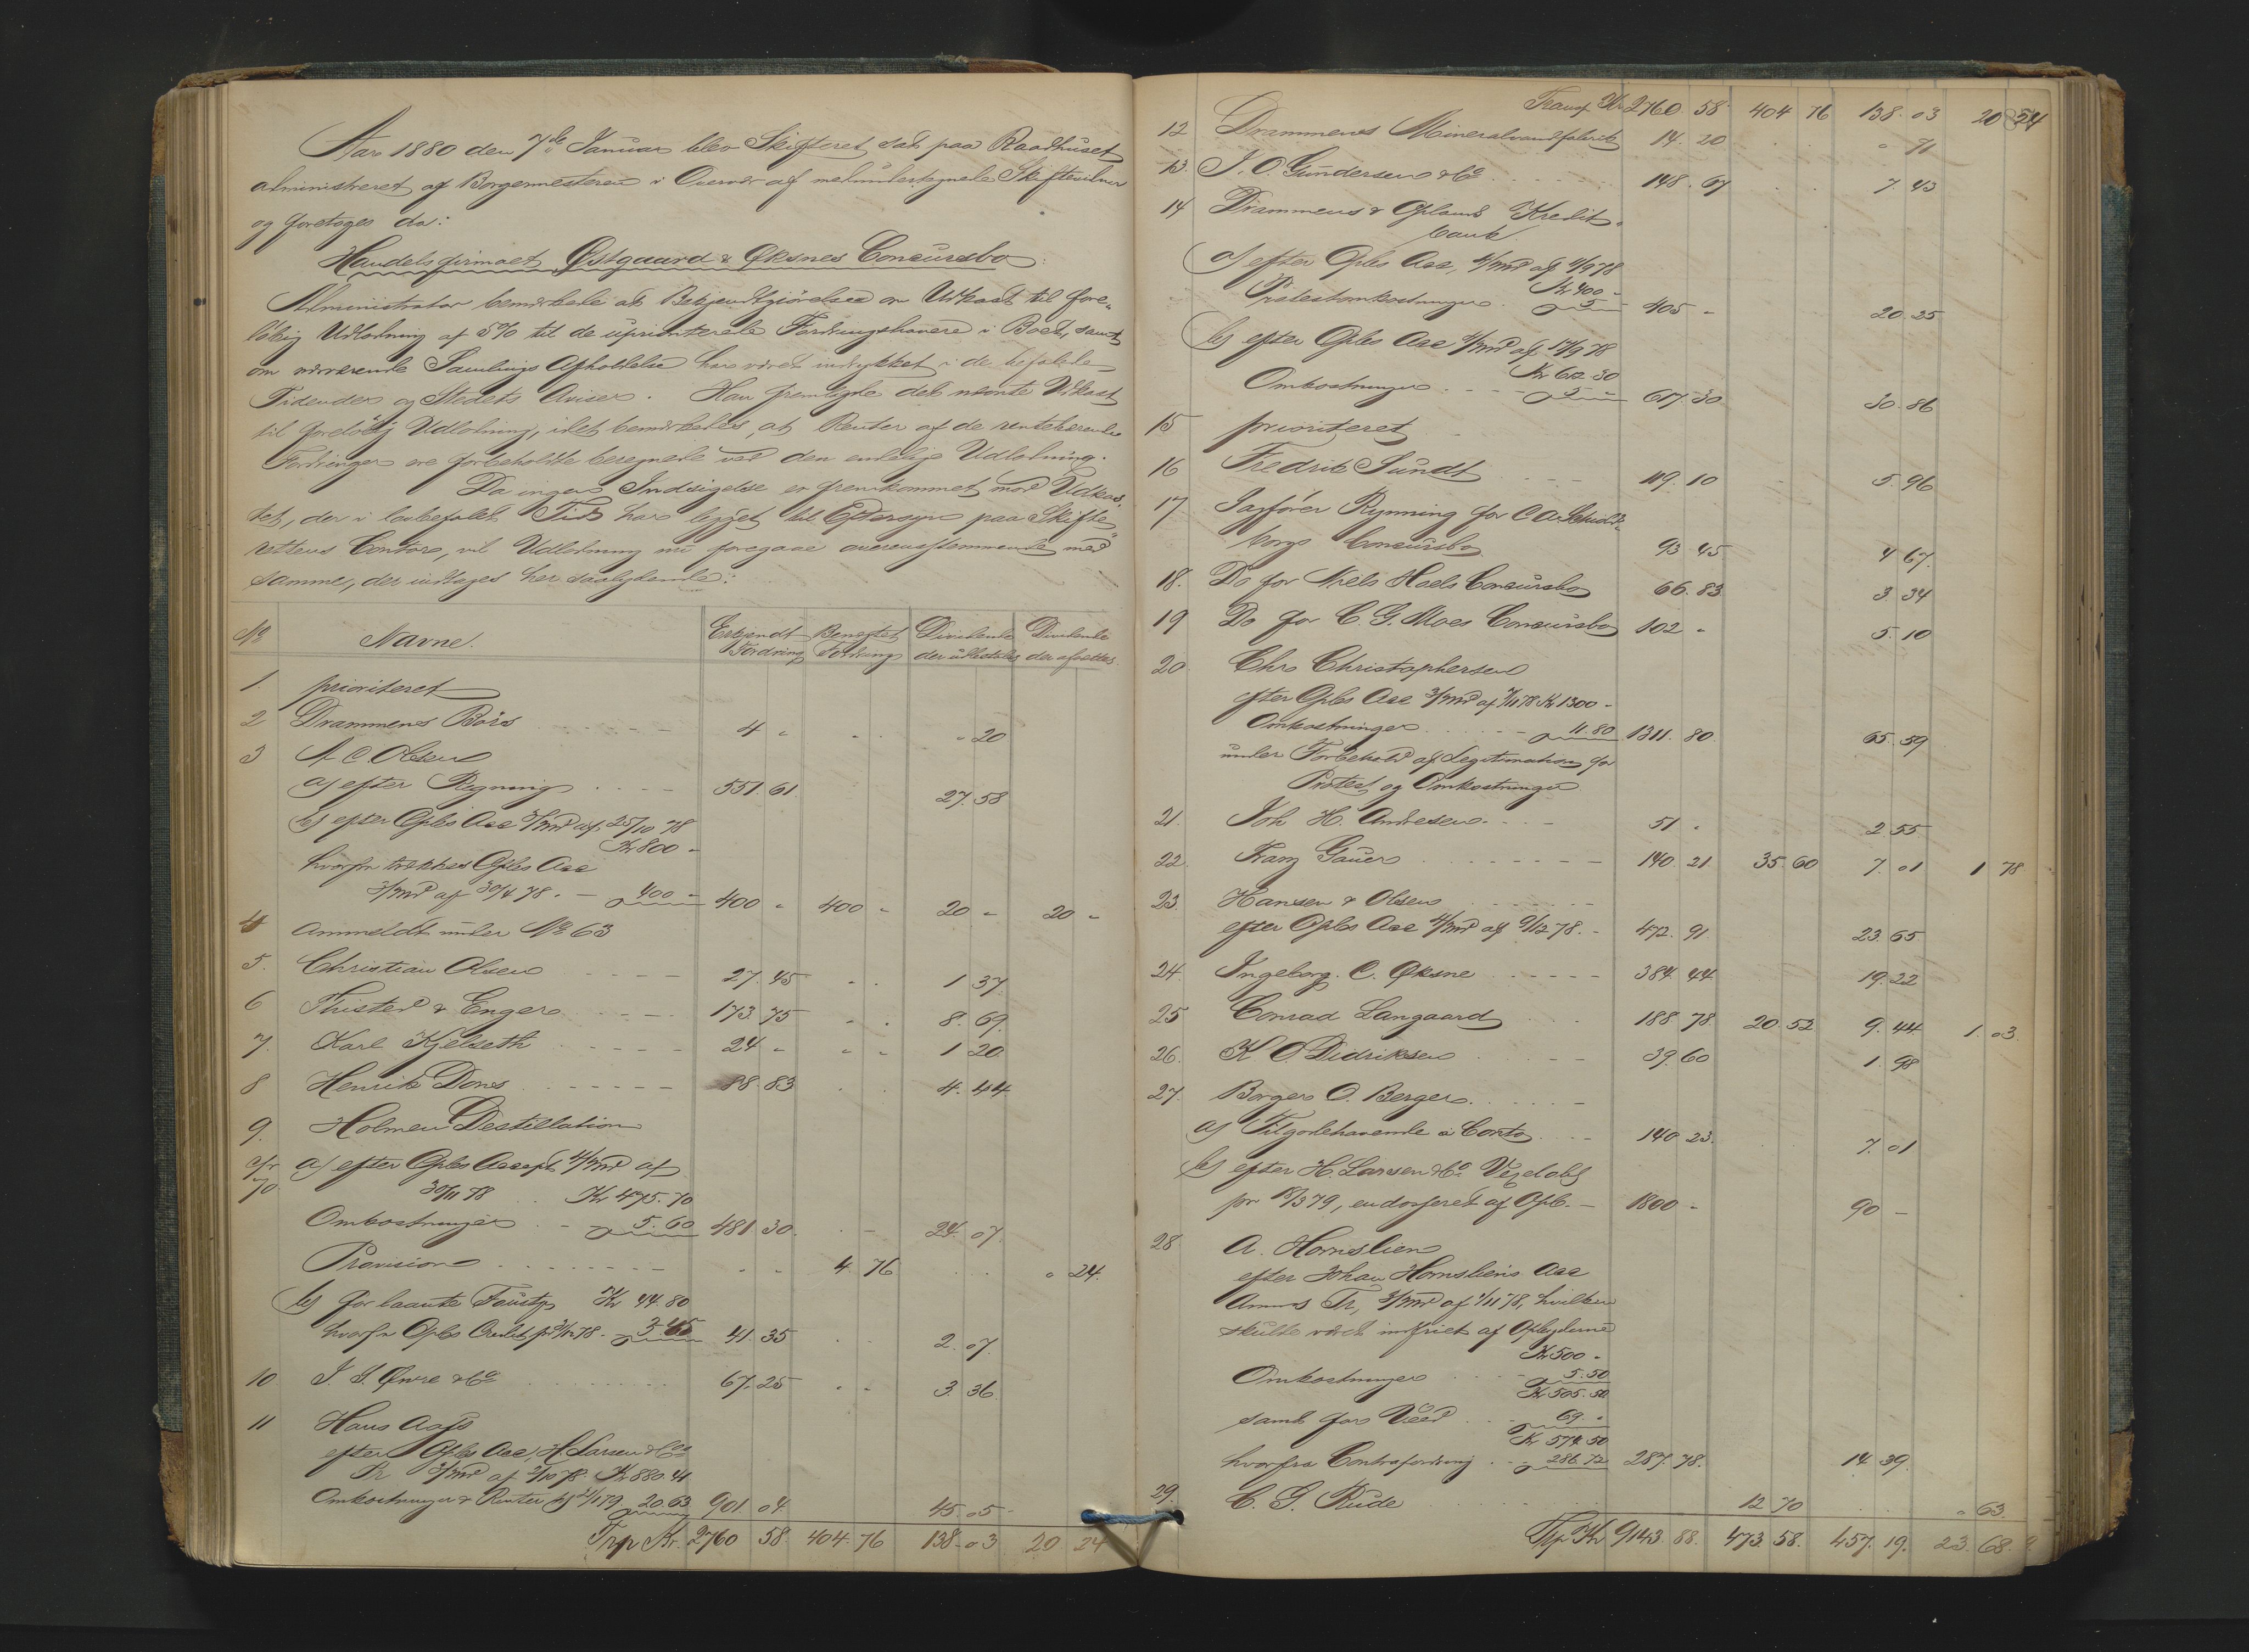 Aar 1880 den 7de Januar blev Skifteret sat paa Raadhuset
administreret af Borgermesteren i Overvær af medundertegnede Skiftevidner
og foretoges da:
Handelsfirmaet Østgaard & Øksnes Concursbo:
Administrator bemærkede at Bekjendtgjörelse om Udkast til fore-
löbig Udlodning af 5% til de uprioriterede Fordringshavere i Boet, samt
om nærværende Samlings Afholdelse har været indrykket i de befalede
Tidender og Stedets Aviser. Han fremlagde det nævnte Udkast
til forelöbig Udlodning, idet bemærkedes, at Renter af de rentebærende
Fordringer ere forbeholdte beregnede ved den endelige Udlodning.
Da ingen Indsigelse er fremkommet mod Udkas-
tet, der i lovbefalet Tid har ligget til Eftersyn paa Skifte-
rettens Contor, vil Udlodning nu foregaae overensstemmende med
samme, der indtages her saalydende:
No Navne. Erkjendt Fordring Benegtet Fordring Dividende der udbetales Dividende der afsættes.
1. prioriteret
2 Drammens Börs 4 " " 20
3 A C. Olsen
a) efter Regning 551. 61 27. 58
b) efter Opbs Acc 3/md af 25/10 78
Kr 800 -
hvorfra trækkes Opbs Acc
3/md af 30/4 78. - 400 - 400 " 400 - 20 - 20 -
4 anmeldt under No 63
5. Christian Olsen 27. 45 1 37.
6 Thisted & Enger 173. 75 8. 69.
7. Karl Kjelseth 24 - 1 20
8 Henrik Dons 88. 83 4. 44
9. Holmen Destillation
cfr 70 a) efter Opbs Accept 4/md af
30/11 78 Kr 475. 70
Omkostninger - 5. 60 481 30. 24. 07.
Provision 4. 76 " 24.
b) for laante Fustp Kr 44. 80
hvorfra Opbs Credit pr 31/12 78 - 3. 45 41. 35 2. 07.
10 J. J. Øvre & Co 67. 25 3. 36.
11 Hans Aass
efter Opbs Acc, H. Larsen & Co
Tr 3/md af 2/10 78. Kr 880. 41
Omkostninger & Renter til 21/1 79 20. 63 901. 04. 45. 05 -
Trp Kr. 2760 58. 404. 76 138 - 03 20 24
Transp Kr 2760. 58 404 76 138. 03 20 24
12 Drammens Mineralvandfabrik 14. 20 " 71
13. J. O. Gundersen & Co 148. 67 7. 43
14 Drammens & Oplands Kredit-
bank
a) efter Opbs Acc, 4/md af 4/9 78
Kr 400 -
Protestomkostninger - 5 - 405 - 20. 25
b) efter Opbs Acc 4/md af 17/9 78
Kr 612. 30
Omkostninger - 5 - 617. 30 30. 86
15 prioriteret
16 Fredrik Sundt 119. 10 5. 96
17. Sagförer Rynning for C A. Schiold-
borgs Concursbo 93. 45 4 67.
18. Do for Niels Hoels Concursbo 66. 83 3. 34
19 Do for C. G. Moes Concursbo 102 - 5. 10
20. Chr Christophersen
efter Opbs Acc 3/md af 7/11 78 Kr 1300 -
Omkostninger - 11. 80 1311. 80. 65. 59
under Forbehold af Legitimation for
Protest og Omkostninger
21. Joh H. Andresen 51 . 2. 55
22. Franz Gauer 140. 21. 35. 60 7. 01 1 78
23. Hansen & Olsen
efter Opbs Acc 4/md af 9/12 78. - 472. 91. 23. 65
24. Ingeborg C. Øksne 384. 44. 19. 22
25 Conrad Langaard 188. 78. 20. 52 9. 44 1. 03.
26. K O Didriksen 39. 60 1. 98
27. Borger O. Berger
a) Tilgodehavende i Conto 140. 23. 7. 01
b) efter H. Larsen & Co Vexelobl
pr 18/3 79, endosseret af Opb. - 1800 - 90 -
28. A. Hornslien
efter Johan Hornsliens Acc
Amms Tr, 3/md af 1/11 78, hvilken
skulde været indfriet af Opbyderne
Kr 500 -
Omkostninger 5. 50
Kr 505. 50
samt for Veed 69. -
Kr 574. 50
hvorfra Contrafordring - 286. 72 287. 78. 14. 39.
29. C. G. Rude 12 70 " 63.
Trp Kr 9143. 88. 473. 58. 457. 19. 23. 68.